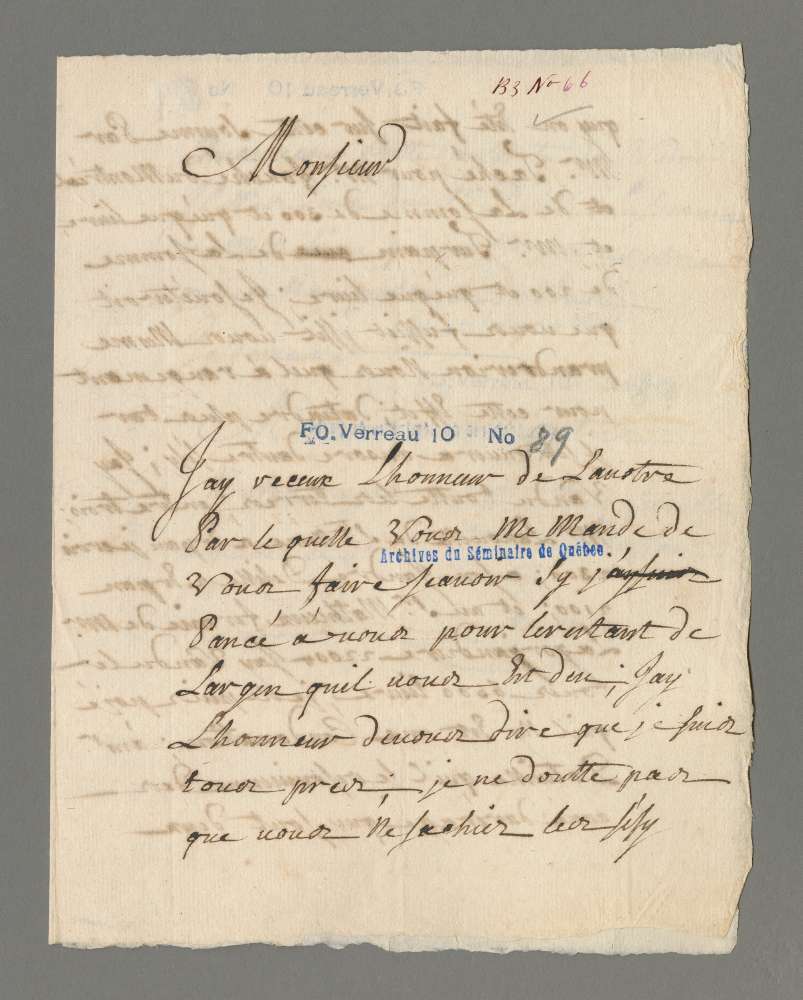 B3 No 66
Monsieur
FO. Verreau 10 No 89
Jay receux Lhonneur de Lauotre
Par le quelle Vous Me Mande de
Archives du Séminaire de Québec.
Vous faire scauoir Sy j'ay
Pancé a vous pour le restant de
Largen quil vous Est deu, Jay
Lhonneur devous dire que je suis
tous pres; je ne doutte pas
que vous Ne sachiez les sésy